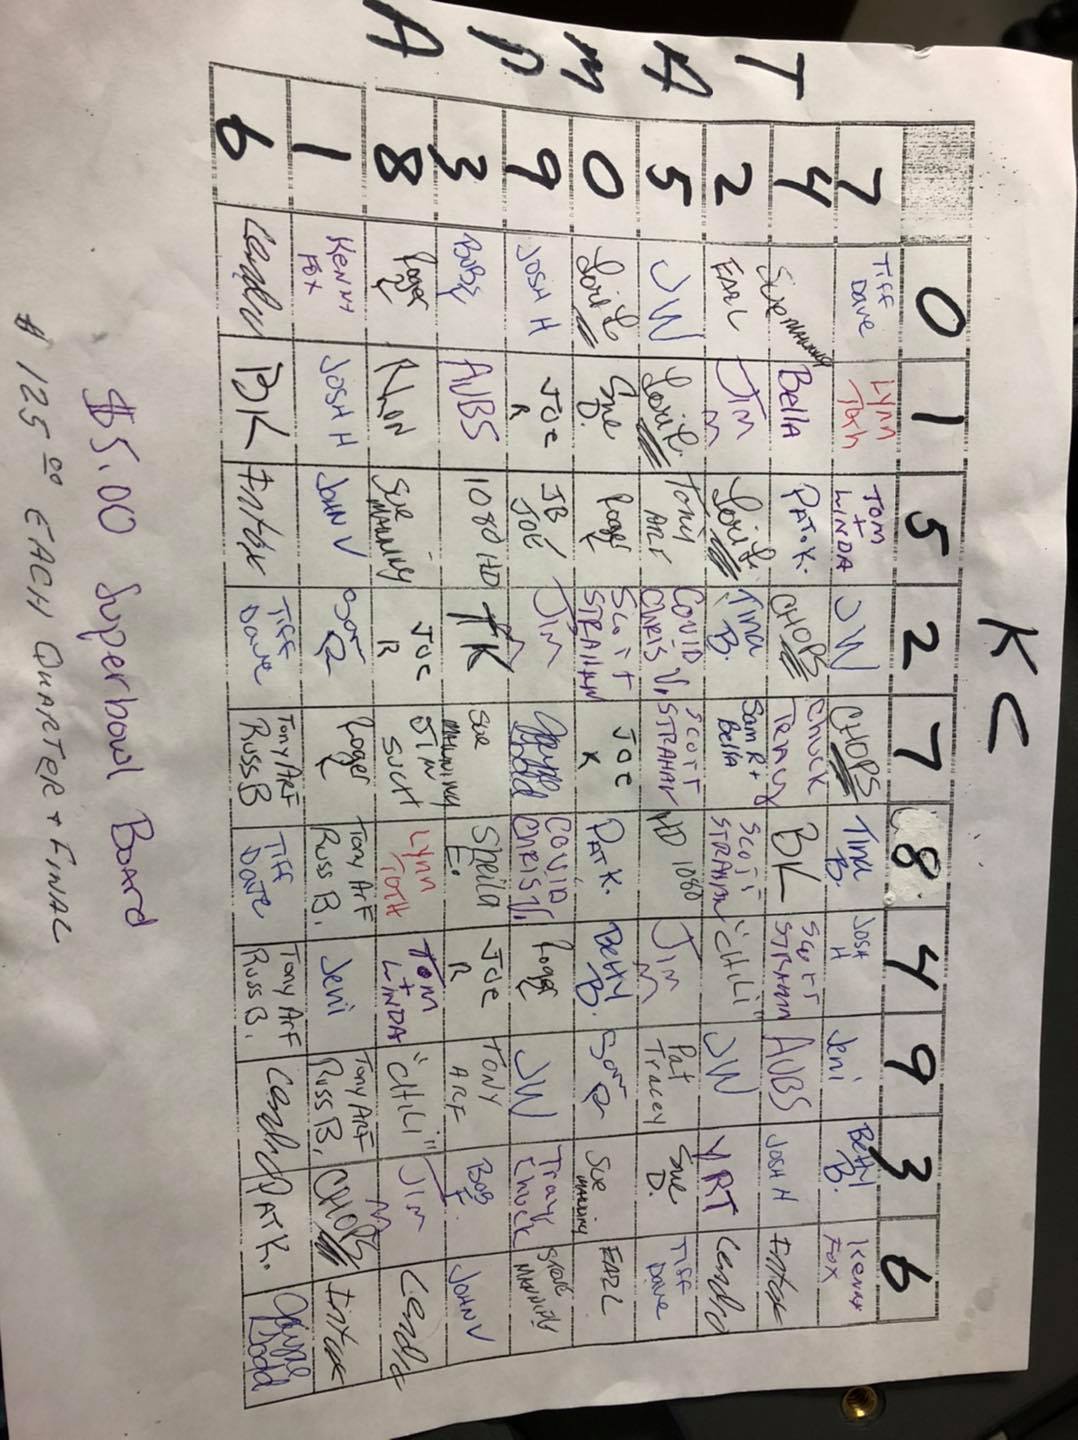 KC
0 1 5 2 7 8 4 9 3 6
TAMPA
7 Tiff Dave Lynn Toth Tom + Linda JW CHOPS Tina B. Josh H Jeni Betty B. Kenny Fox
4 Sue Manning Bella Pat K. CHOPS Chuck Tracy BK Scott Strahan AUBS Josh H Intox
2 EARL Jim M Lori E Tina B. Sam R + Bella Scott Strahan "CHILI" JW YRT
5 JW Lori E Tony ARF COVID CHRIS V. Scott Strahan HD 1080 Jim M Pat Tracey Sue D. Tiff Dave
0 Lori E Sue D. Roger Scott Strahan Joe K Pat K. Betty B. Sam R Sue Manning EARL
9 Josh H Joe R JB Joe Jim M Jayne Dodd COVID CHRIS V. Roger JW Tracy Chuck Steve Manning
3 Bob E AUBS 1080 HD TK Sue Manning Sheila E. Joe R Tony ARF Bob E. John V
8 Roger Ron Sue Manning Joe R Jim Such Lynn Toth Tom + Linda "CHILI" Jim M
1 Kenny Fox Josh H John V Sam R Roger Tony ArF Russ B. Jeni Tony ARF Russ B. CHOPS Intox
6 BK Intox Tiff Dave Tony ArF Russ B Tiff Dave Tony ArF Russ B. Pat K. Jayne Dodd
$5.00 Superbowl Board
$125.00 EACH QUARTER + FINAL